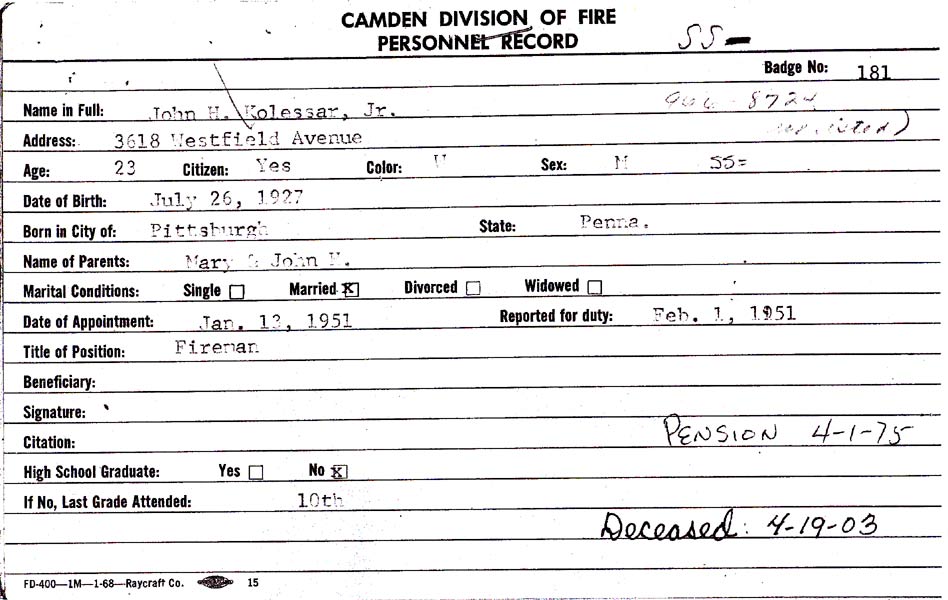 CAMDEN DIVISION OF FIRE
PERSONNEL RECORD
SS-
Badge No: 181
Name in Full: John H. Kolessar, Jr.
Address: 3618 Westfield Avenue
Age: 23 Citizen: Yes Color: Sex: M SS=
Date of Birth: July 26, 1927
Born in City of: Pittsburgh State: Penna.
Name of Parents: Mary & John H.
Marital Conditions: Single Married X Divorced Widowed
Date of Appointment: Jan. 13, 1951 Reported for duty: Feb. 1, 1951
Title of Position: Fireman
Beneficiary:
Signature:
Citation: PENSION 4-1-75
High School Graduate: Yes No X
If No, Last Grade Attended: 10th
Deceased: 4-19-03
FD-400—1M—1-68—Raycraft Co. 15